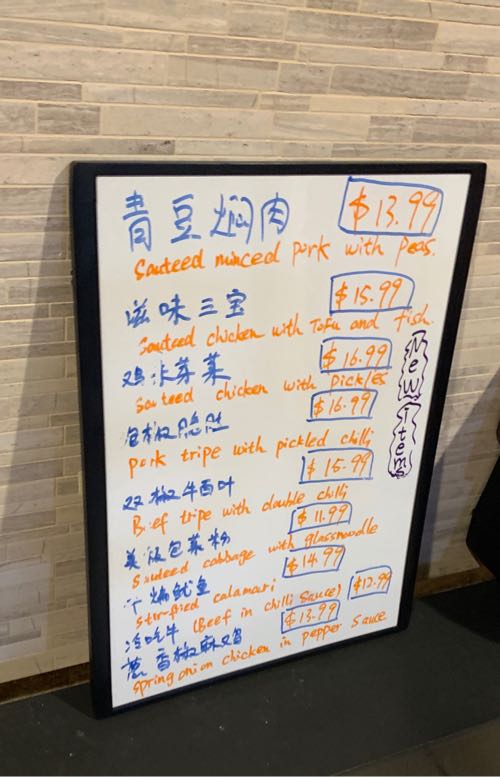 青豆焖肉 $13.99
Sauteed minced pork with peas.
滋味三宝 $15.99
Sauteed chicken with Tofu and fish.
鸡米芽菜 $16.99
Sauteed chicken with pickles
泡椒 $16.99
pork tripe with pickled chilli
双椒牛百叶 $15.99
Beef tripe with double chilli
包菜粉 $11.99
Sauteed cabbage with glassnoodle
干煸鱿鱼 $14.99
Stir-fried calamari
冷吃牛 (Beef in chilli Sauce) $12.99
葱香椒麻鸡 $13.99
spring onion chicken in pepper sauce
New Items